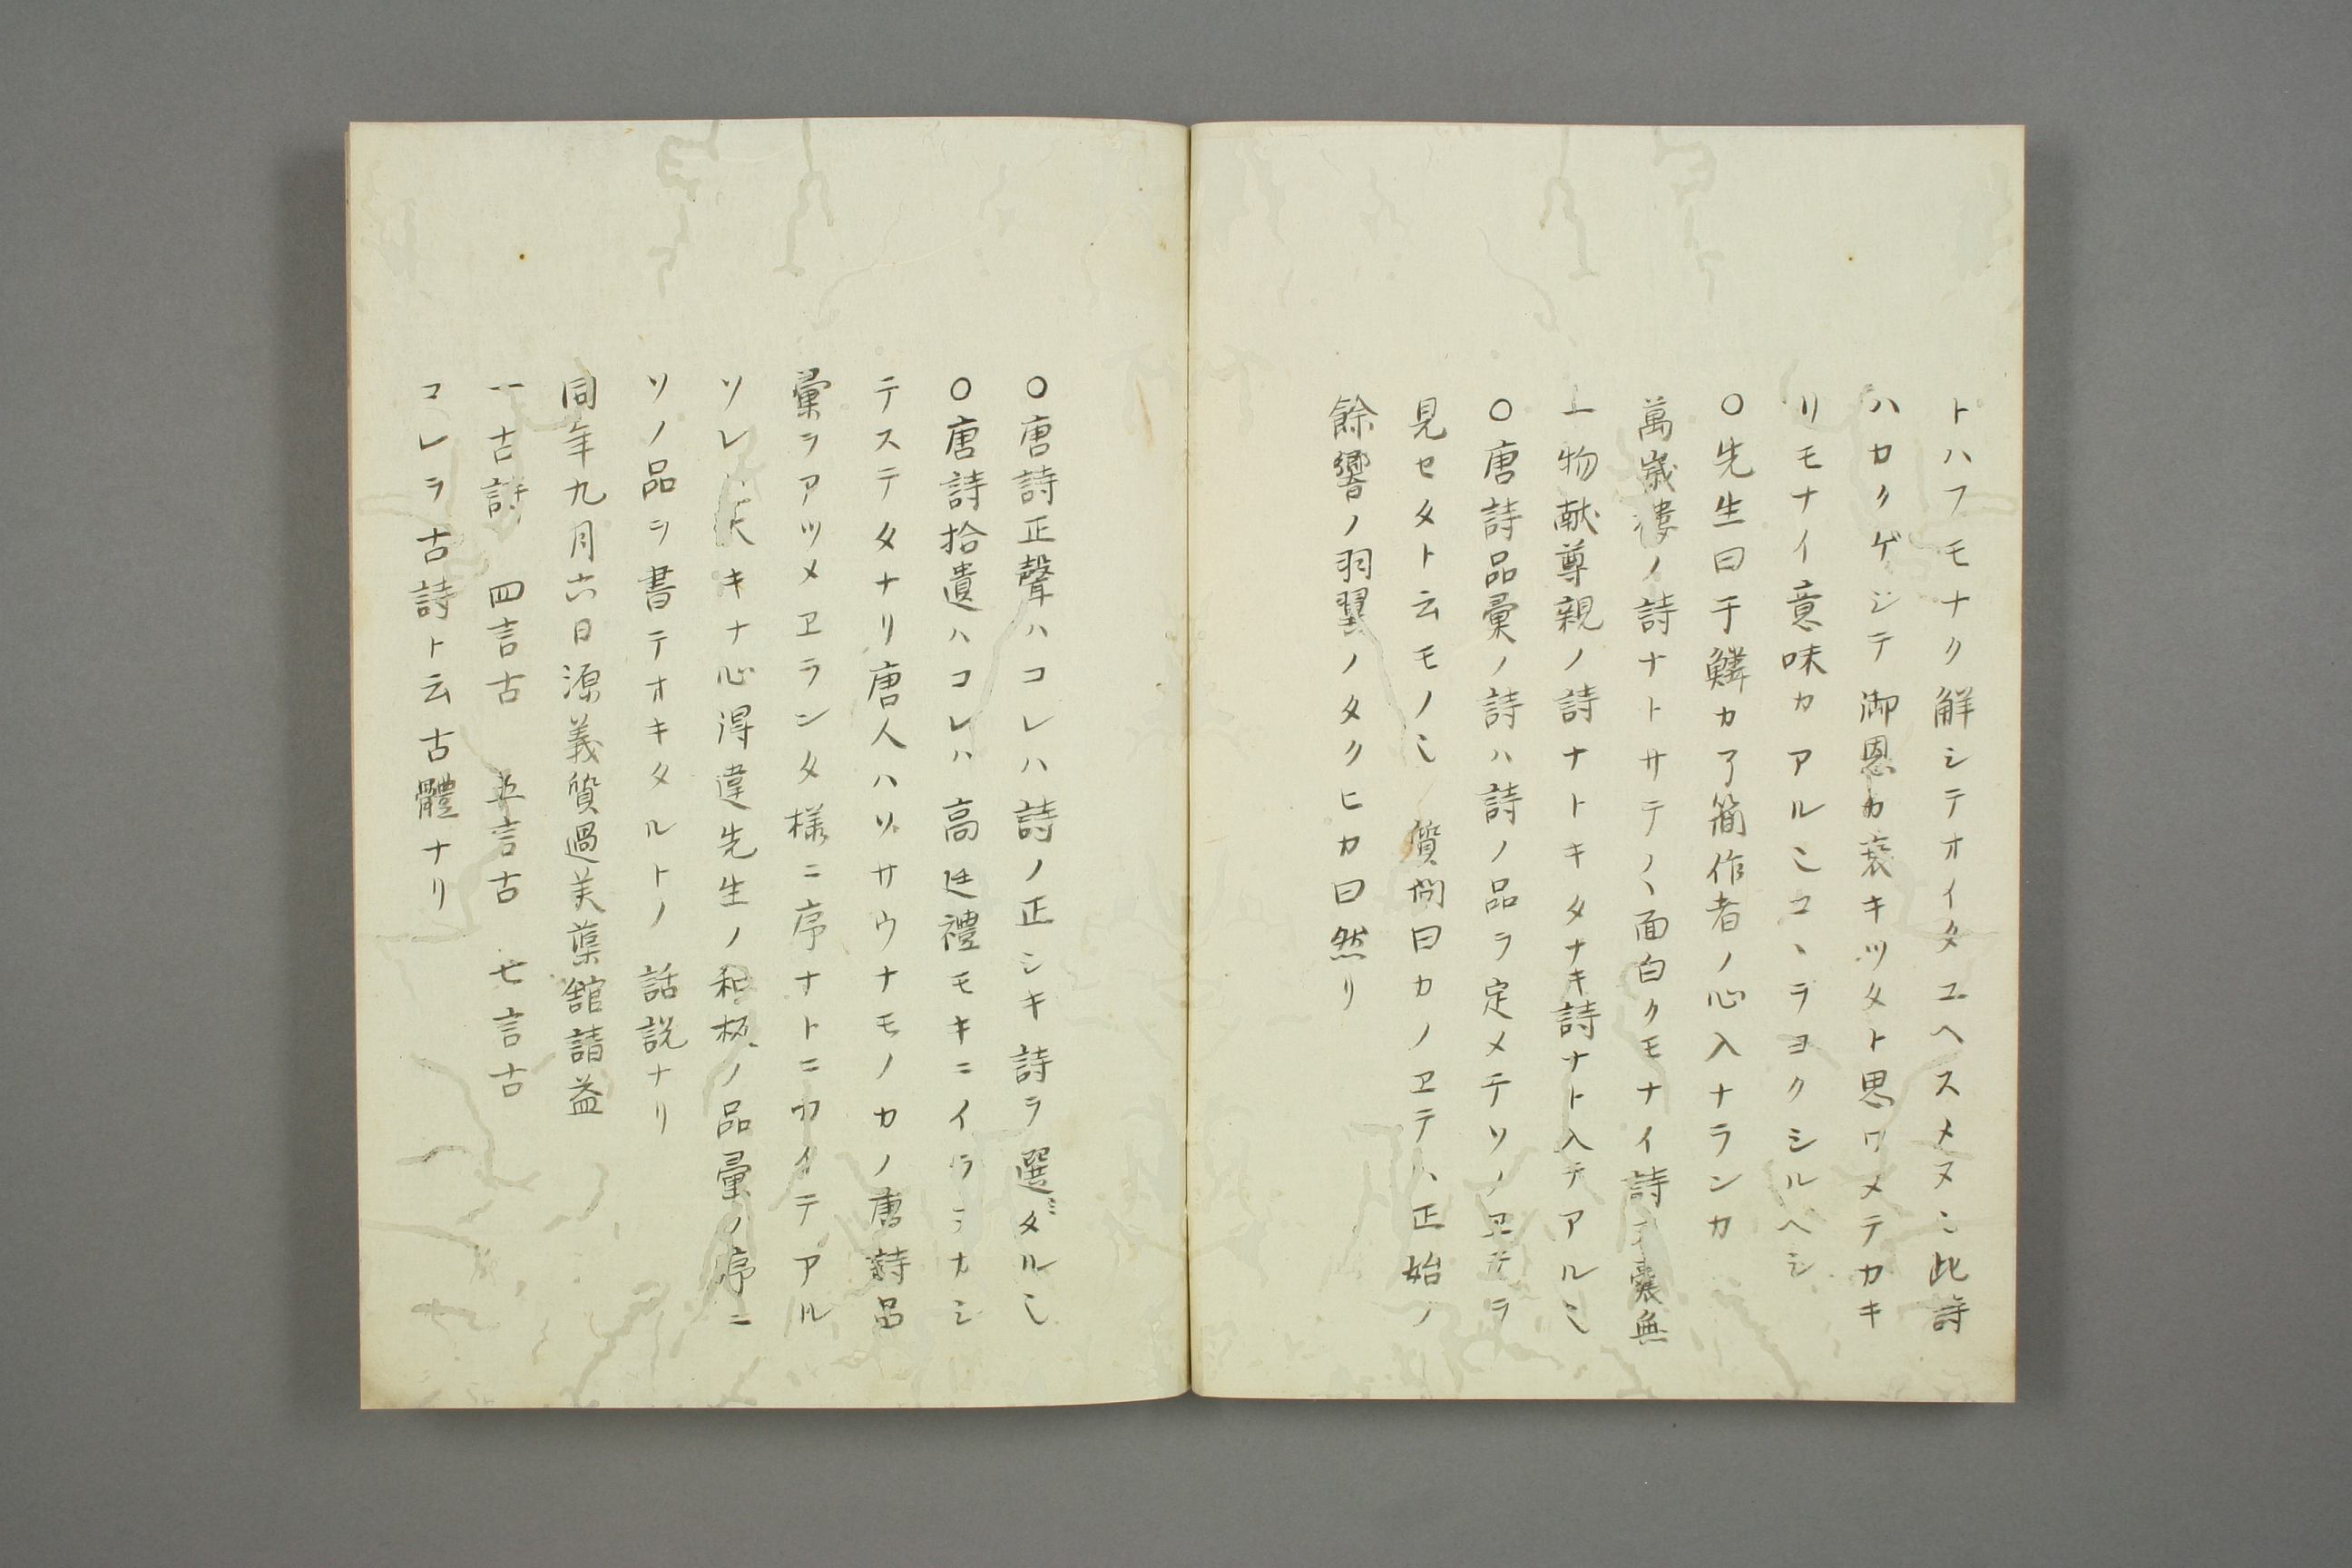 トハフモナク解シテオイタユヘスメヌ𪜈此詩
ハカクゲジテ御恩カ衰キツタト思ワメテカキ
リモナイ意味カアルヿコヽラヨクシルヘシ
〇先生曰于鱗カ了簡作者ノ心入ナランカ
萬歳樓ノ詩ナトサテノヽ面白クモナイ詩 囊無
一物献尊親ノ詩ナトキタナキ詩ナト入テアルヿ
〇唐詩品彙ノ詩ハ詩ノ品ヲ定メテソノヱテヲ
見セタト云モノヿ 質問曰カノヱテハ正始ノ
餘響ノ羽翼ノタクヒカ曰然リ
〇唐詩正聲ハコレハ詩ノ正シキ詩ヲ選ミタルヿ
〇唐詩拾遺ハコレハ高廷禮モキニイラテナシ
テステタナリ唐人ハソサウナモノカノ唐詩品
彙ヲアツメヱランタ様ニ序ナトニカイテアル
ソレ 大キナ心得違先生ノ和板ノ品彙ノ序ニ
ソノ品ヲ書テオキタルトノ話説ナリ
同年九月六日源義質過美葉舘請益
一古詩 四言古 五言古 七言古
コレヲ古詩ト云古體ナリ